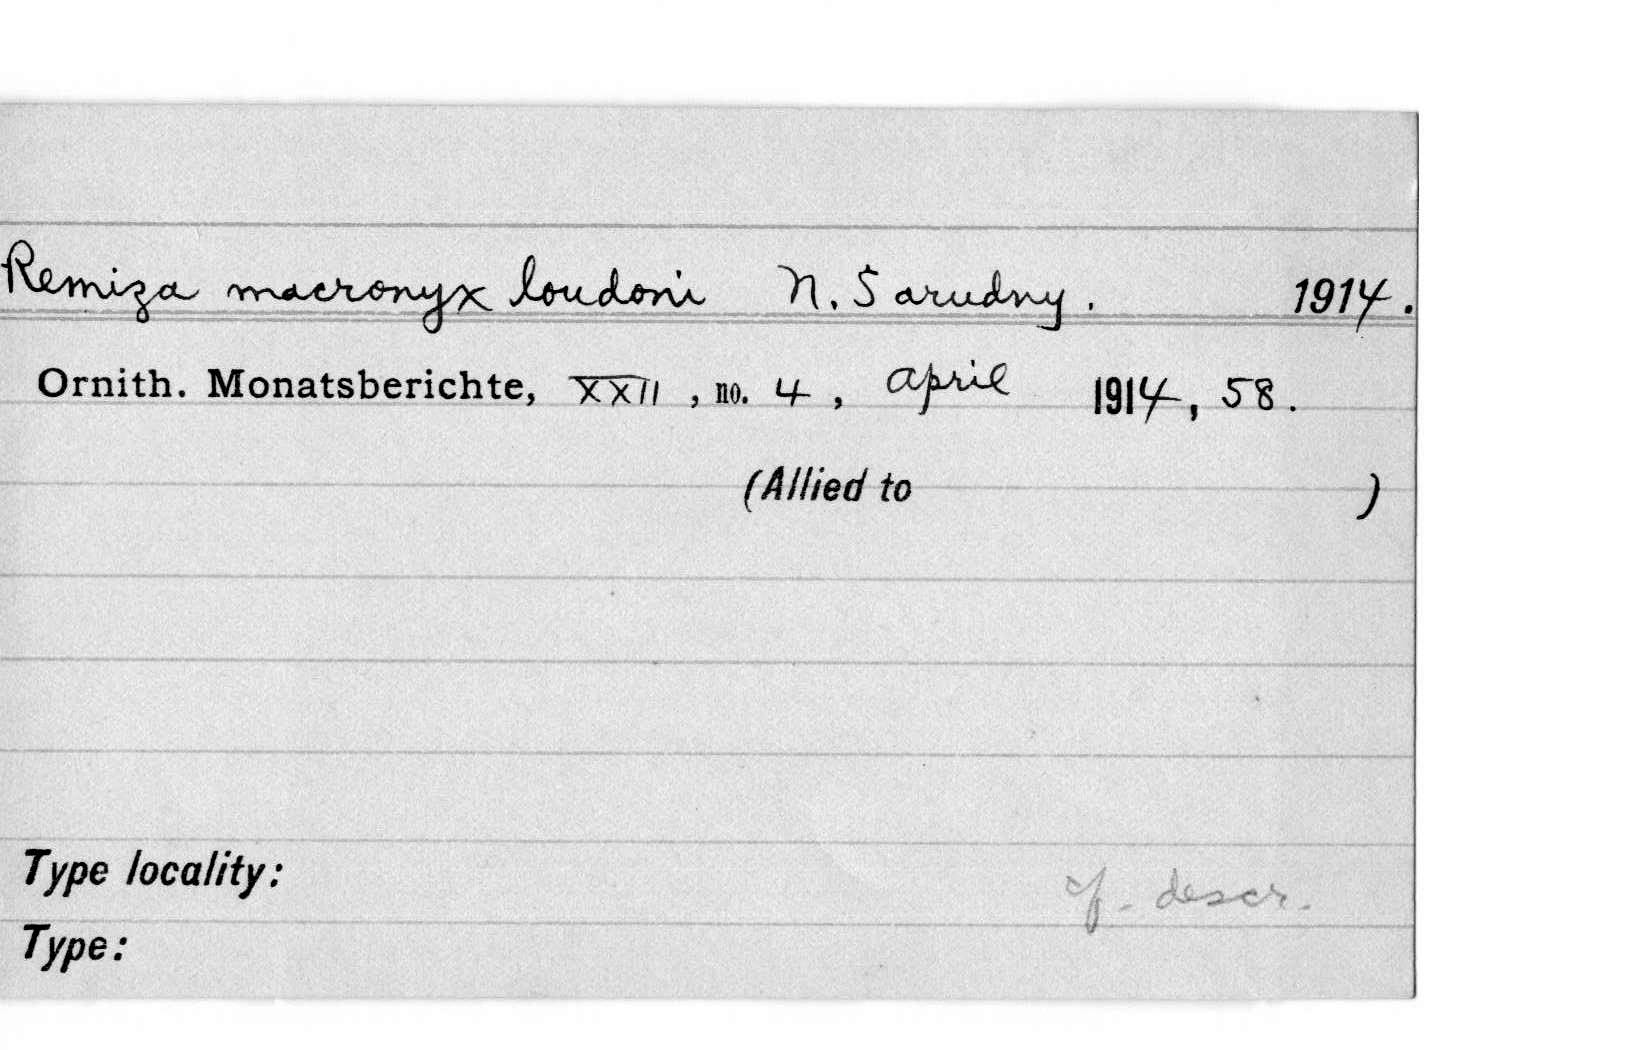 Remiza macronyx loudoni N. Sarudny. 1914.
Ornith. Monatsberichte, XXII, no. 4, April 1914, 58.
(Allied to )
Type locality:
cf. descr.
Type: